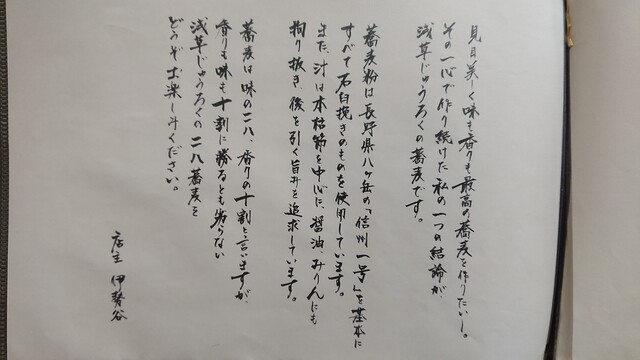 見目美しく味も香りも最高の蕎麦を作りたい―。
その一心で作り続けた私の一つの結論が
浅草じゅうろくの蕎麦です。
蕎麦粉は長野県八ヶ岳の「信州一号」を基本に
すべて石臼挽きのものを使用しています。
また、汁は本枯節を中心に、醤油、みりんにも
拘り抜き、後を引く旨みを追求しています。
蕎麦は味の二八、香りの十割と言いますが、
香りも味も十割に勝るとも劣らない
浅草じゅうろくの二八蕎麦を
どうぞお楽しみください。
店主 伊勢谷